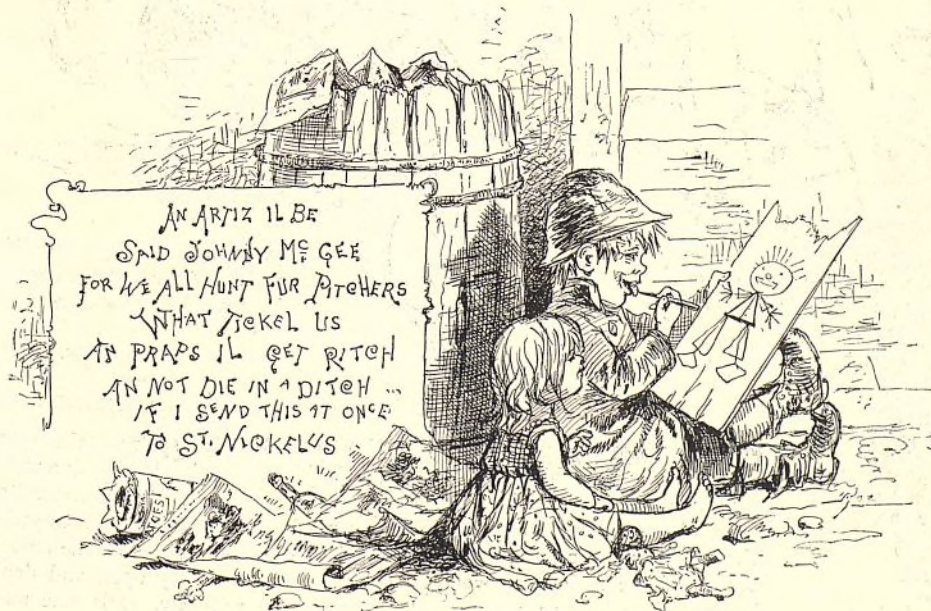 AN ARTIZ IL BE
SAID JOHNNY Mc GEE
FOR WE ALL HUNT FUR PITCHERS
WHAT TICKEL US
AN PRAPS IL GET RITCH
AN NOT DIE IN A DITCH ...
IF I SEND THIS AT ONCE
TO ST. NICKELUS